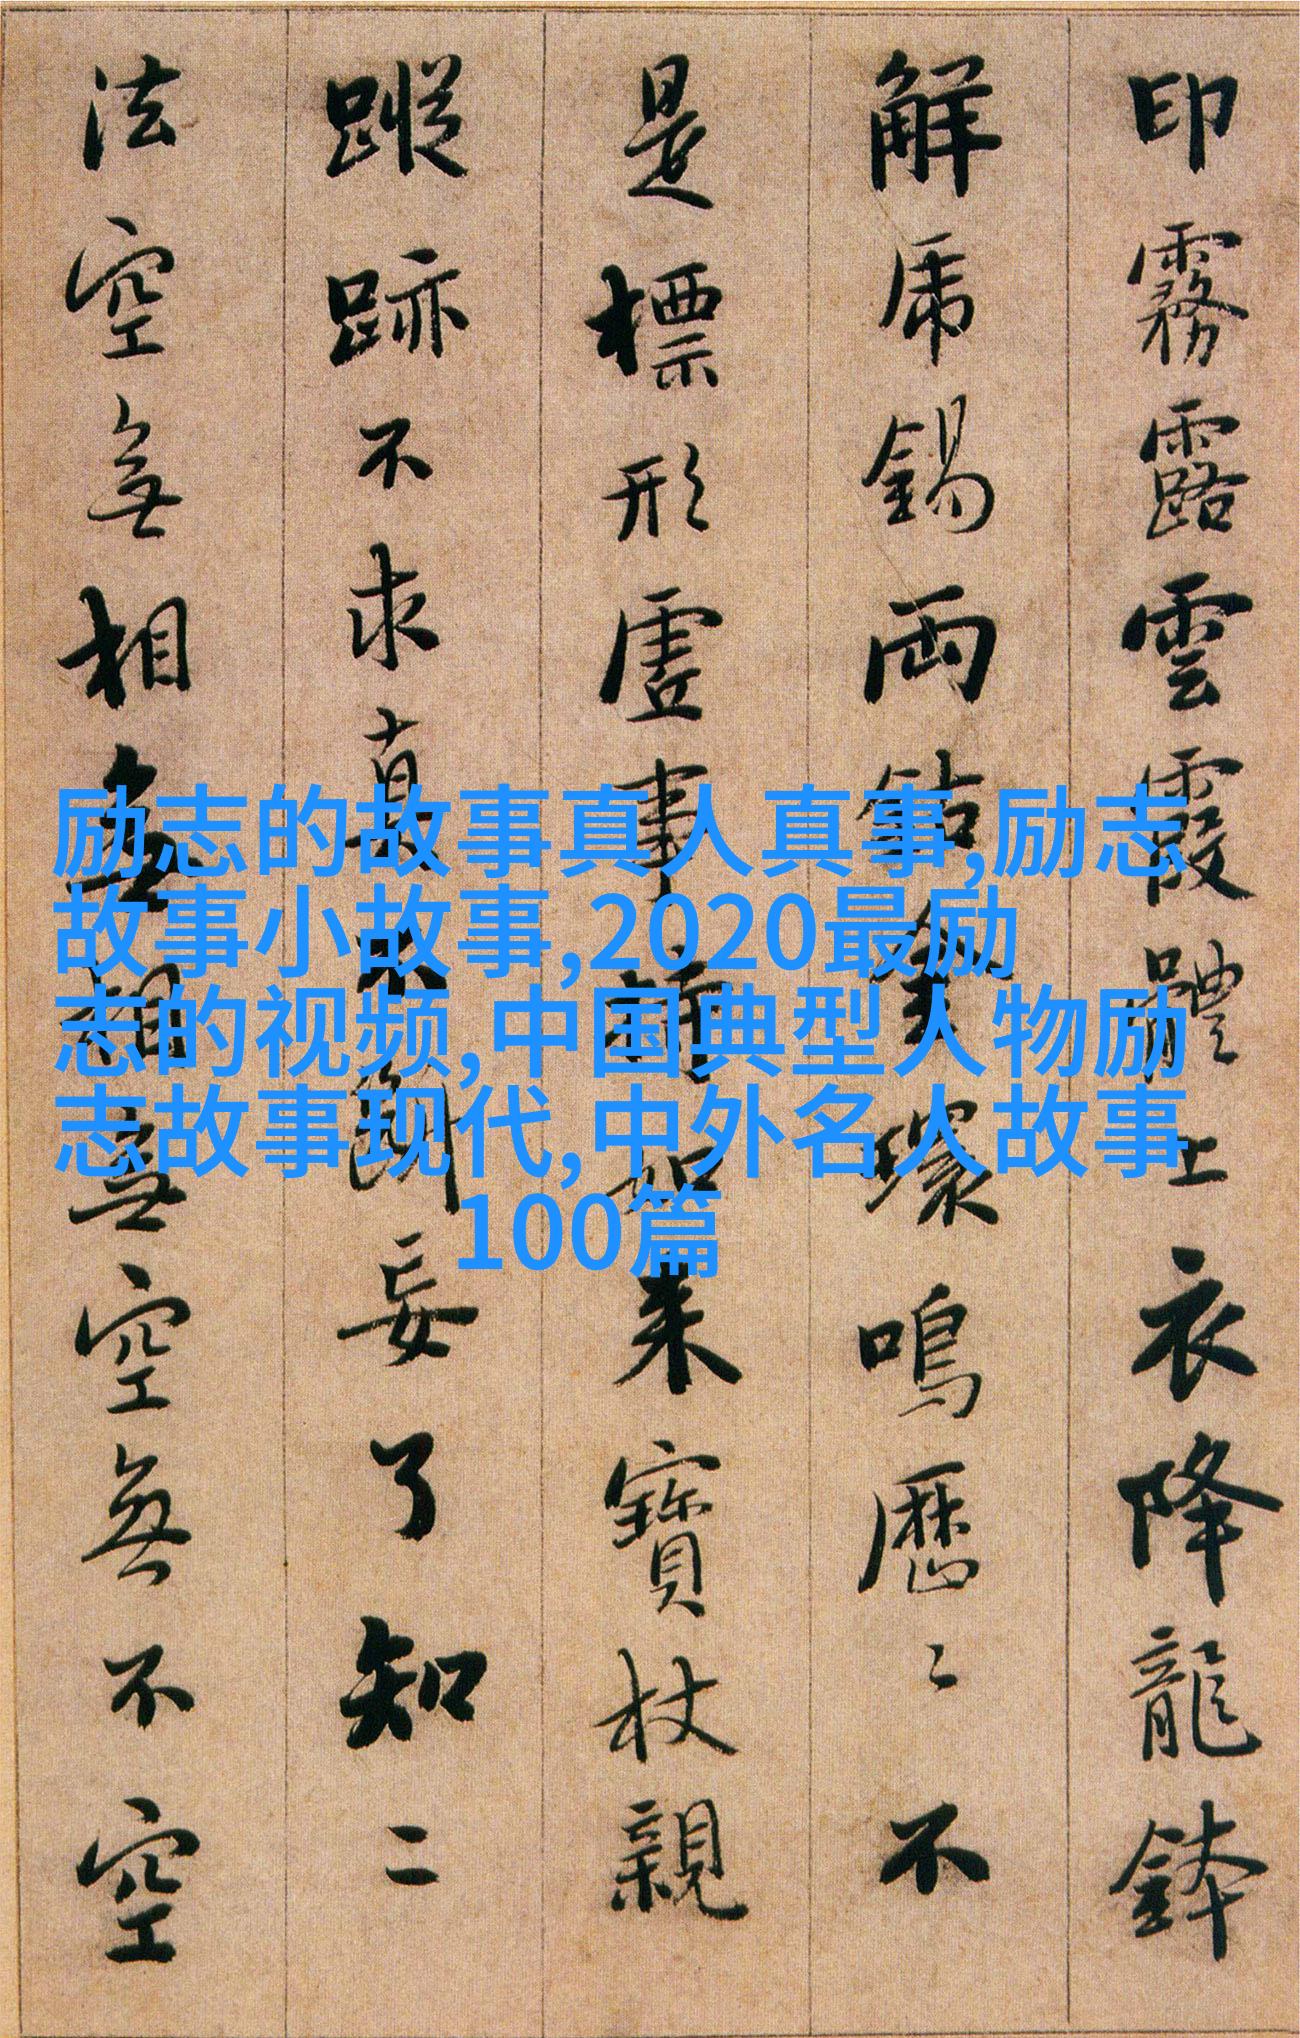 印霧露雲霞體上衣降龍鉢
解虎錫兩鈷金環鳴歷々不
是標形虛事持如来寶杖親
蹤跡不求真不斷妄了知二
法空無相無相無空無不空
励志的故事真人真事,励志
故事小故事,2020最励
志的视频,中国典型人物励
志故事现代,中外名人故事
100篇